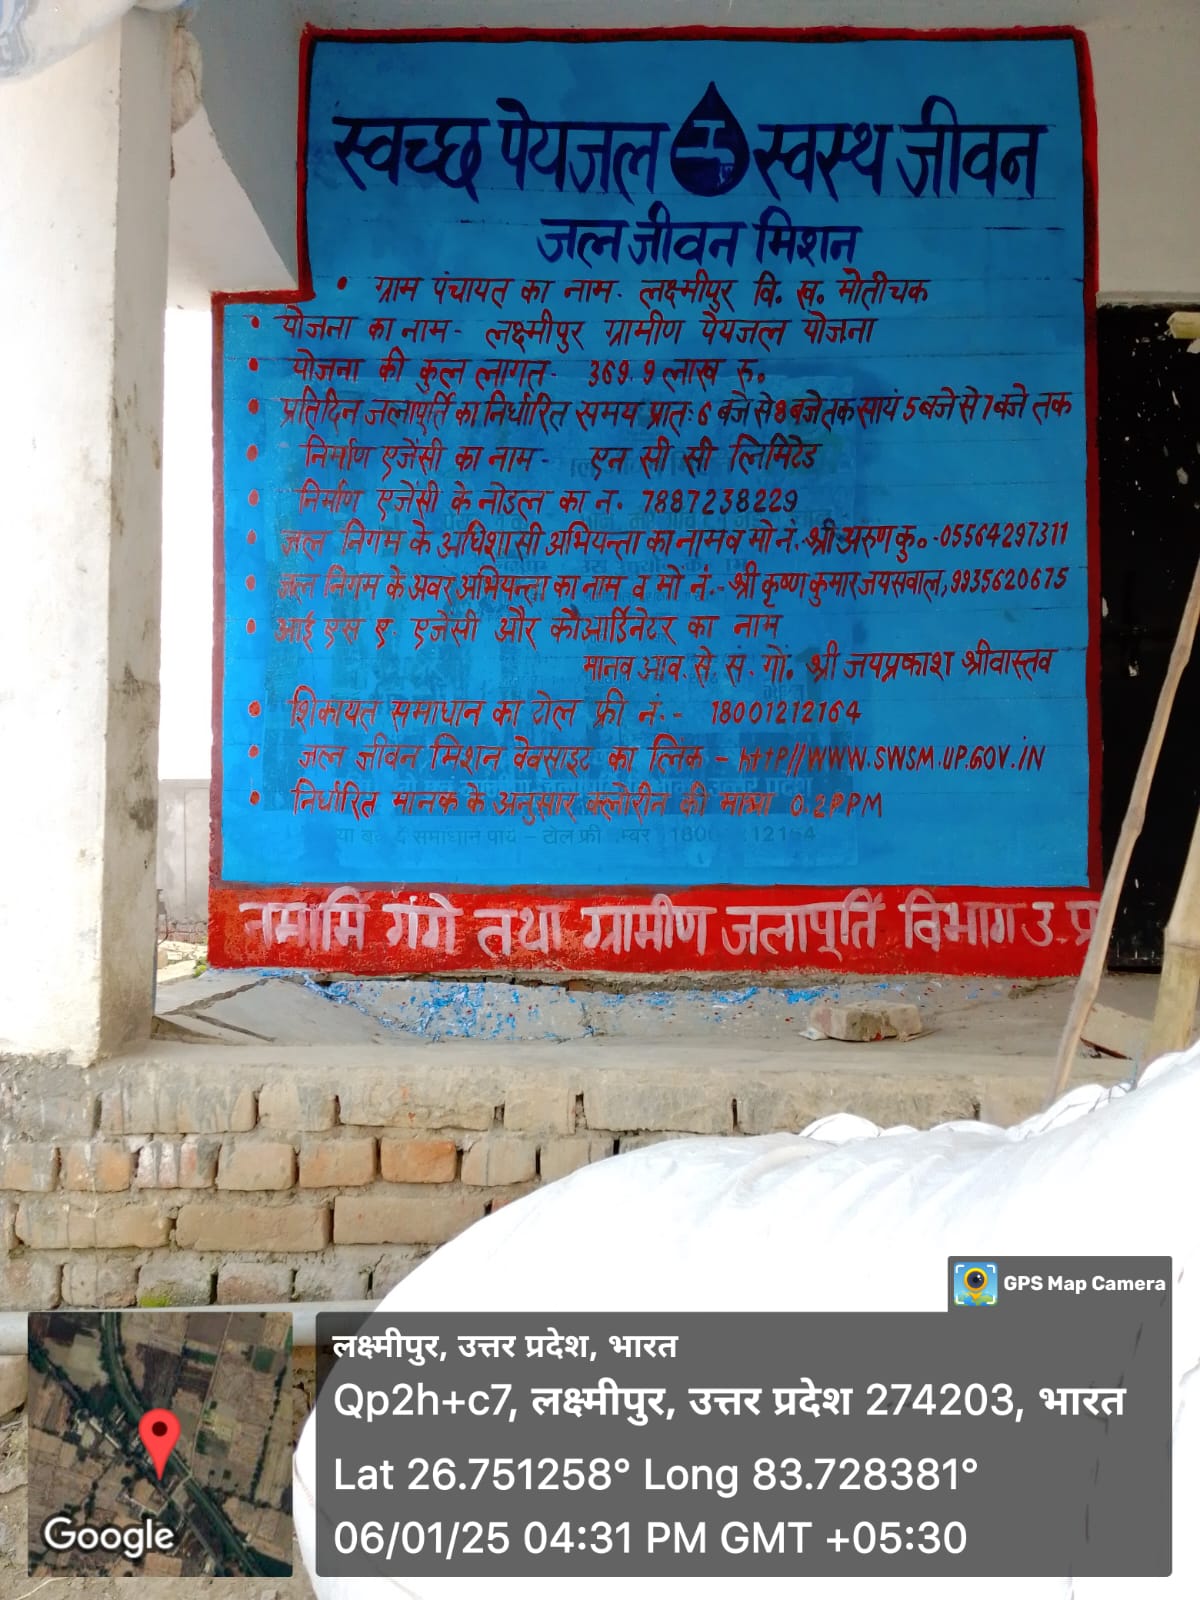 स्वच्छ पेयजल स्वस्थ जीवन
जल जीवन मिशन
• ग्राम पंचायत का नाम- लक्ष्मीपुर वि. ख. मोतीचक
• योजना का नाम- लक्ष्मीपुर ग्रामीण पेयजल योजना
• योजना की कुल लागत- 369.9 लाख रु.
• प्रतिदिन जलापूर्ति का निर्धारित समय प्रात: 6 बजे से 8 बजे तक सायं 5 बजे से 7 बजे तक
• निर्माण एजेंसी का नाम- एन सी सी लिमिटेड
• निर्माण एजेंसी के नोडल का न. 7887238229
• जल निगम के अधिशासी अभियन्ता का नाम व मो नं.- श्री अरुण कु०-05564297311
• जल निगम के अवर अभियन्ता का नाम व मो नं.- श्री कृष्ण कुमार जयसवाल, 9935620675
• आई एस ए. एजेंसी और कौआर्डिनेटर का नाम
मानव आव. से. सं. गो. श्री जयप्रकाश श्रीवास्तव
• शिकायत समाधान का टोल फ्री नं.- 18001212164
• जल जीवन मिशन वेवसाइट का लिंक - HTTP//WWW.SWSM.UP.GOV.iN
• निर्धारित मानक के अनुसार क्लोरीन की मात्रा 0.2PPM
समाधान पायें – टोल फ्री
नमामि गंगे तथा ग्रामीण जलापूर्ति विभाग उ.प्र
GPS Map Camera
लक्ष्मीपुर, उत्तर प्रदेश, भारत
Qp2h+c7, लक्ष्मीपुर, उत्तर प्रदेश 274203, भारत
Lat 26.751258° Long 83.728381°
06/01/25 04:31 PM GMT +05:30
Google